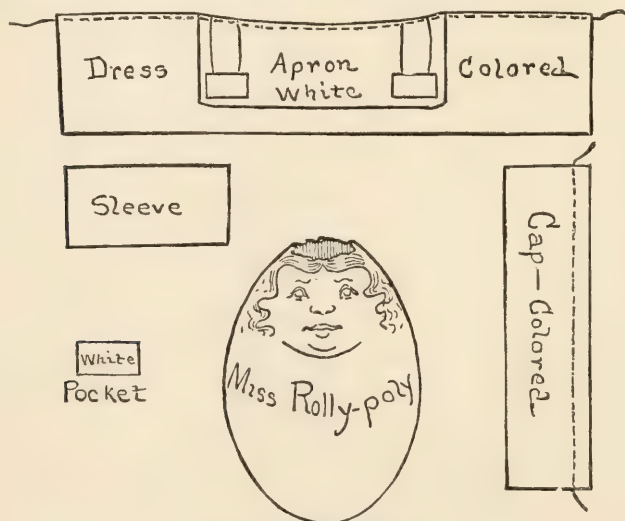 Dress
Apron
White
Colored
Sleeve
Cap-Colored
White
Pocket
Miss Rolly-poly